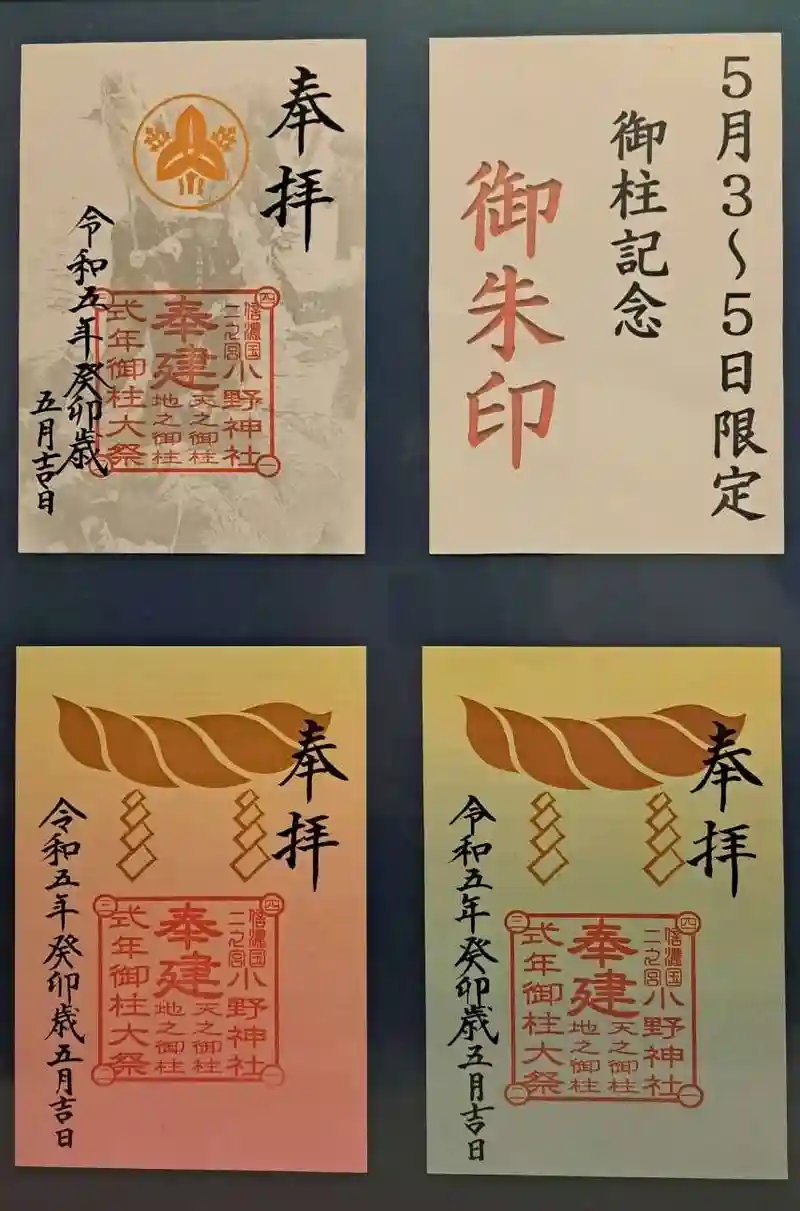 奉拝
四
一
信濃国
二之宮
小野神社
奉建
天之御柱
地之御柱
式年御柱大祭
令和五年癸卯歳
五月吉日
5月3～5日限定
御柱記念
御朱印
奉拝
四
三
二
一
信濃国
二之宮
小野神社
奉建
天之御柱
地之御柱
式年御柱大祭
令和五年癸卯歳五月吉日
奉拝
四
三
二
一
信濃国
二之宮
小野神社
奉建
天之御柱
地之御柱
式年御柱大祭
令和五年癸卯歳五月吉日